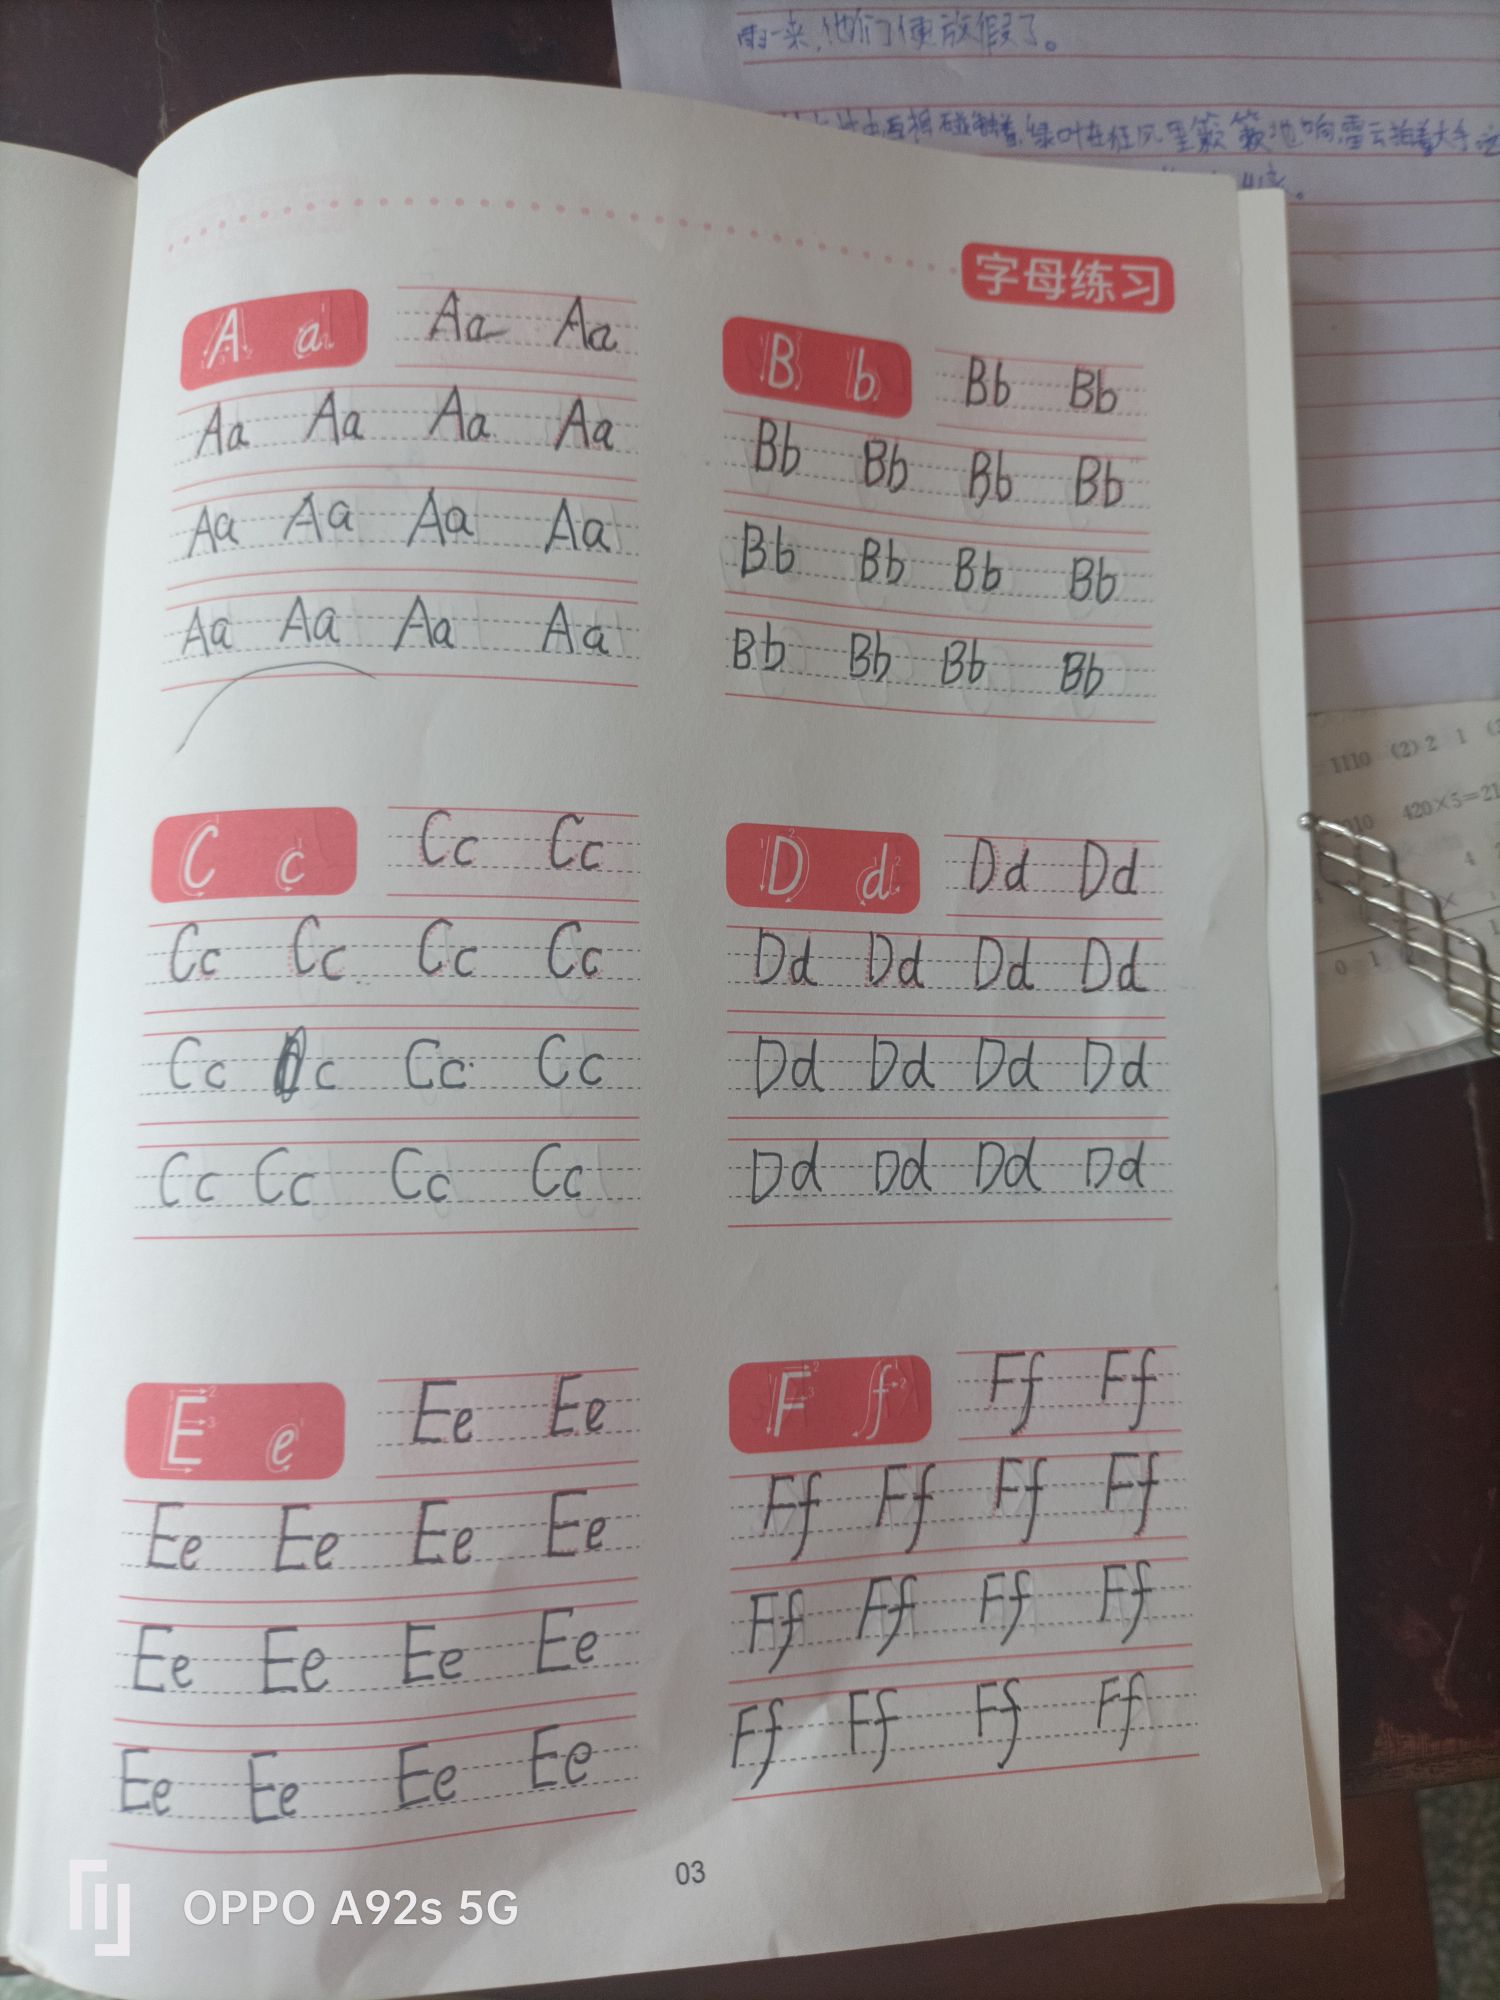 雨一来，他们便放假了。
互相碰触着，绿叶在狂风里簌簌地响，雷云拍着大手
字母练习
A a Aa Aa
Aa Aa Aa Aa
Aa Aa Aa Aa
Aa Aa Aa Aa
B b Bb Bb
Bb Bb Bb Bb
Bb Bb Bb Bb
Bb Bb Bb Bb
C c Cc Cc
Cc Cc Cc Cc
Cc c Cc Cc
Cc Cc Cc Cc
D d Dd Dd
Dd Dd Dd Dd
Dd Dd Dd Dd
Dd Dd Dd Dd
E e Ee Ee
Ee Ee Ee Ee
Ee Ee Ee Ee
Ee Ee Ee Ee
F f Ff Ff
Ff Ff Ff Ff
Ff Ff Ff Ff
Ff Ff Ff Ff
1110 (2) 2 1
420×5=21
0 1
03
OPPO A92s 5G